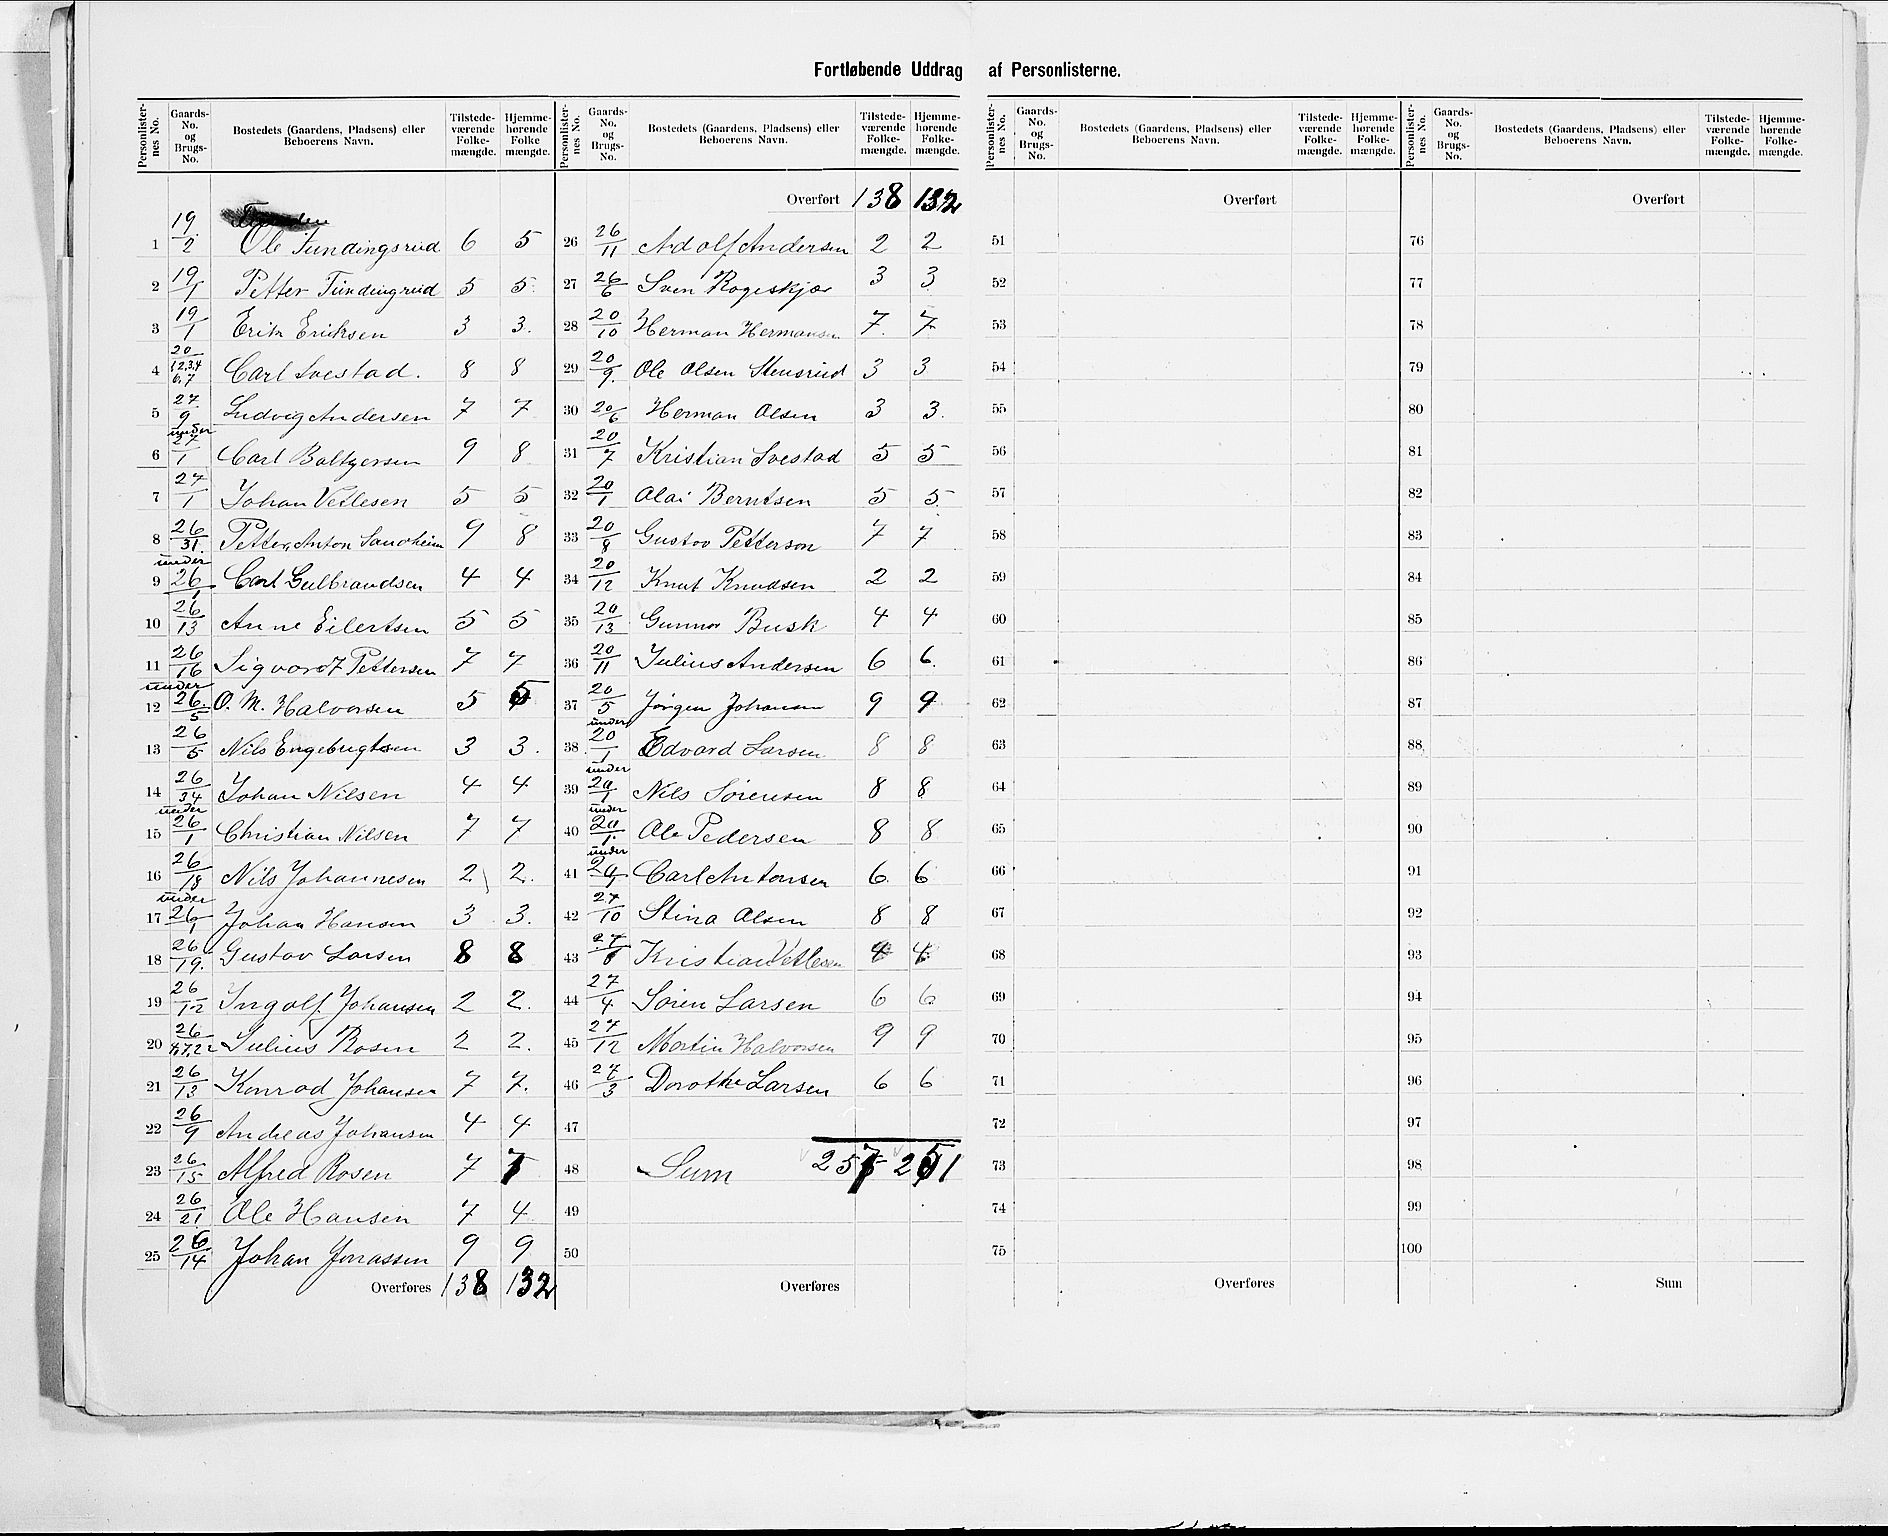 Fortløbende Uddrag af Personlisterne.
Personlister-nes No. Gaards-No. og Brugs-No. Bostedets (Gaardens, Pladsens) eller Beboerens Navn. Tilstede-værende Folke-mængde. Hjemme-hørende Folke mængde.
Personlister-nes No. Gaards-No. og Brugs-No. Bostedets (Gaardens, Pladsens) eller Beboerens Navn. Tilstede-værende Folke-mængde. Hjemme-hørende Folke-mængde.
1 19/2 Ole Tundingsrud 6 5
2 19/1 Petter Tundingrud 5 5.
3 19/1 Erik Eriksen 3 3.
4 20/1 2,3,4 6,7 Carl Svestad. 8 8
5 27/9 Ludvig Andersen 7 7
6 under 27/1 Carl Baltzersen 9 8
7 27/1 Johan Vetlesen 5 5
8 26/31. Petter Anton Sandheim 9 8
9 under 26/1 Carl Gulbrandsen 4 4
10 26/13 Anne Eilertsen 5 5
11 26/16 Sigvardt Pettersen 7 7
12 under 26./5 O. M. Halvorsen 5 5
13 26/5 Nils Engebrigtsen 3 3.
14 26/34 Johan Nilsen 4 4
15 under 26/1 Christian Nilsen 7 7
16 26/18 Nils Johannesen 2 2.
17 under 26/1 Johan Hansen 3 3.
18 26/19. Gustav Larsen 8 8
19 26/12 Ingolf Johansen 2 2.
20 26/ 4,7,22 Julius Rosen 2 2.
21 26/13 Konrad Johansen 7 7.
22 26/9 Andreas Johansen 4 4
23 26/15 Alfred Rosen 7 7
24 26/21 Ole Hansen 7 4
25 26/14 Johan Jonassen 9 9
Overføres 138 132
Overført 138 132
26 26/11 Adolf Andersen 2 2
27 26/6 Sven Rogeskjær 3 3
28 20/10 Herman Hermansen 7. 7
29 20/9. Ole Olsen Stensrud 3 3
30 20/6 Herman Olsen 3 3.
31 20/7 Kristian Svestad 5 5
32 20/1 Olai Berntsen 5 5.
33 20/8 Gustav Petterson 7 7
34 20/12 Knut Knudsen 2 2
35 20/13 Gunnar Busk 4 4
36 20/11 Julius Andersen 6 6.
37 20/5 Jørgen Johansen 9 9
38 under 20/1 Edvard Larsen 8 8
39 under 20/1 Nils Sørensen 8 8
40 under 20/1. Ole Pedersen 8 8
41 under 20/1 Carl Antonsen 6. 6
42 27/10 Stina Olsen 8 8
43 27/6 Kristian Vetlesen 4 4
44 27/4 Søren Larsen 6 6
45 27/12 Martin Halvorsen 9 9
46 27/3 Dorothe Larsen 6 6
47
48 Sum 257 251
49
50
Overføres
Personlister-nes No. Gaards-No. og Brugs-No. Bostedets (Gaardens, Pladsens) eller Beboerens Navn. Tilstede-værende Folke-mængde. Hjemme-hørende Folke-mængde.
Personlister-nes No. Gaards-No. og Brugs-No. Bostedets (Gaardens, Pladsens) eller Beboerens Navn. Tilstede-værende Folke-mængde. Hjemme-hørende Folke-mængde.
Overført
51
52
53
54
55
56
57
58
59
60
61
62
63
64
65
66
67
68
69
70
71
72
73
74
75
Overføres
Overført
76
77
78
79
80
81
82
83
84
85
86
87
88
89
90
91
92
93
94
95
96
97
98
99
100
Sum